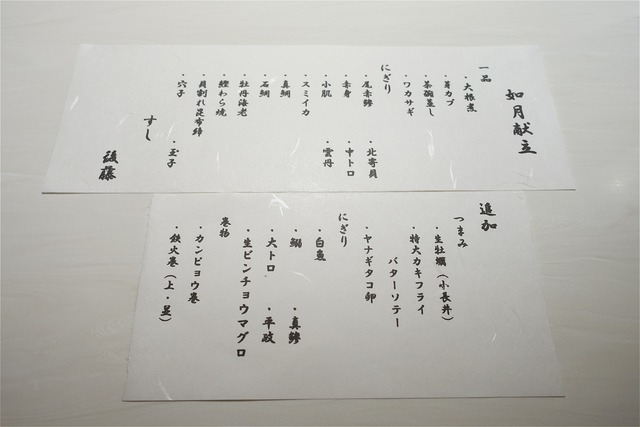 如月献立
一品
・大根煮
・芽カブ
・茶碗蒸し
・ワカサギ
にぎり
・尾赤鯵 ・北寄貝
・赤身 ・中トロ
・小肌 ・雲丹
・スミイカ
・真鯛
・石鯛
・牡丹海老
・鰹わら焼
・貝割れ昆布〆
・穴子 ・玉子
すし
後藤
追加
つまみ
・生牡蠣(小長井)
・特大カキフライ
バターソテー
・ヤナギタコ卵
にぎり
・白魚
・鰯 ・真鯵
・大トロ ・平政
・生ビンチョウマグロ
巻物
・カンピョウ巻
・鉄火巻(上・並)